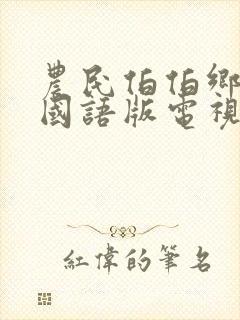 農民伯伯鄉
國語版電視
紅偉的筆名